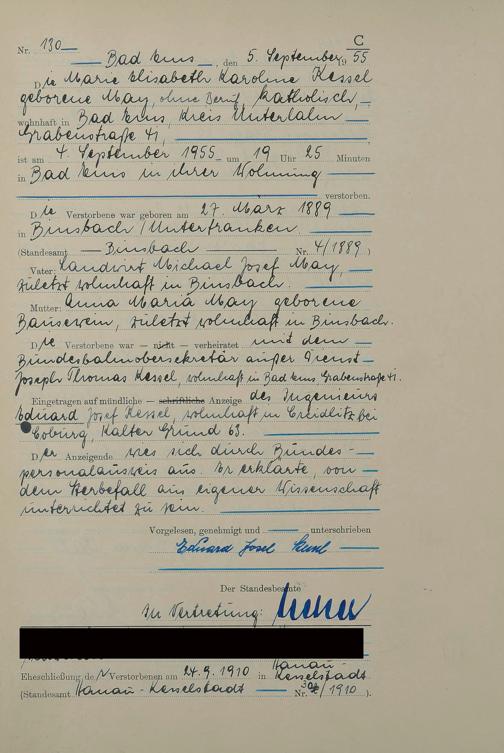 C
Nr. 130
Bad Ems, den 5. September 1955
Die Marie Elisabeth Karoline Kessel
geborene May, ohne Beruf, katholisch,
wohnhaft in Bad Ems, Kreis Unterlahn
Grabenstraße 41,
ist am 4. September 1955 um 19 Uhr 25 Minuten
in Bad Ems in ihrer Wohnung
verstorben.
Die Verstorbene war geboren am 27. März 1889
in Binsbach/Unterfranken.
(Standesamt Binsbach Nr. 4/1889)
Vater: Landwirt Michael Josef May,
zuletzt wohnhaft in Binsbach.
Mutter: Anna Maria May geborene
Bausewein, zuletzt wohnhaft in Binsbach.
Die Verstorbene war — nicht — verheiratet mit dem
Bundesbahnobersekretär außer Dienst
Joseph Thomas Kessel, wohnhaft in Bad Ems, Grabenstraße 41.
Eingetragen auf mündliche — schriftliche — Anzeige des Ingenieurs
Eduard Josef Kessel, wohnhaft in Creidlitz bei
Coburg, Kalter Grund 63.
Der Anzeigende wies sich durch Bundes-
personalausweis aus. Er erklärte, von
dem Sterbefall aus eigener Wissenschaft
unterrichtet zu sein.
Vorgelesen, genehmigt und unterschrieben
Eduard Josef Kessel
Der Standesbeamte
In Vertretung:
Eheschließung der Verstorbenen am 24.9.1910 in Hanau-
Kesselstadt
(Standesamt Hanau-Kesselstadt Nr. /1910).